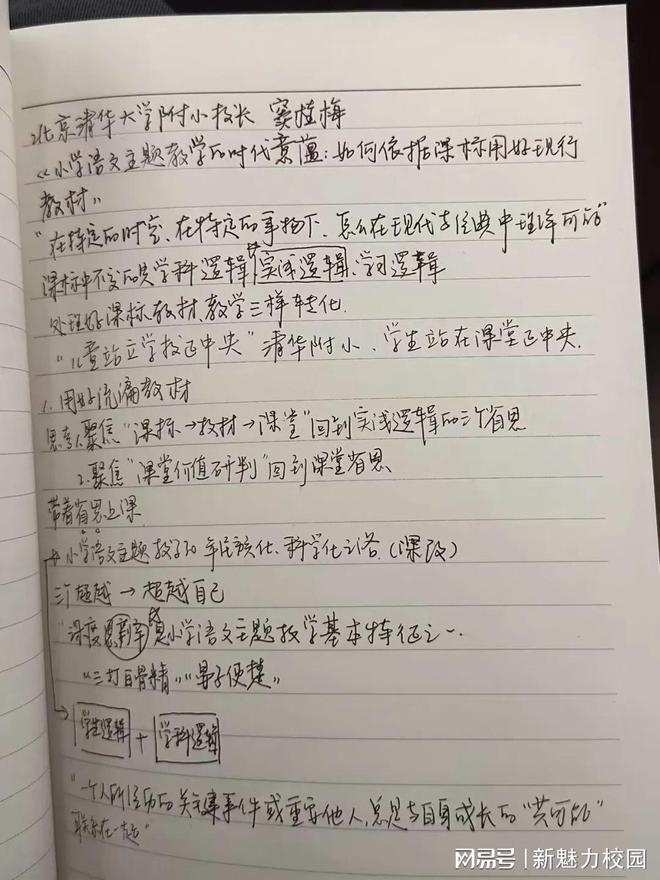 北京清华大学附小校长 窦桂梅
《小学语文主题教学的时代意蕴:如何依据课标用好现行
教材》
"在特定的时空、在特定的事物下,怎么在现代与经典中推降可能"
课标中不变的是学科逻辑、实践逻辑、学习逻辑
处理好课标、教材、教学三样转化.
"儿童站立学校正中央"清华附小、学生站在课堂正中央.
1. 用好统编教材
思考1.聚焦"课标→教材→课堂"回到实践逻辑的三个省思
2.聚焦"课堂价值研判"回到课堂省思
带着省思上课
小学语文主题教学30年民族化、科学化之路.(课改)
三个超越→超越自己
"深度思辨是小学语文主题教学基本特征之一.
"三打白骨精""晏子使楚"
学生逻辑 + 学科逻辑
"一个人所经历的关键事件或重要他人,总是与自身成长的"共可能"
联系在一起"
网易号 | 新魅力校园